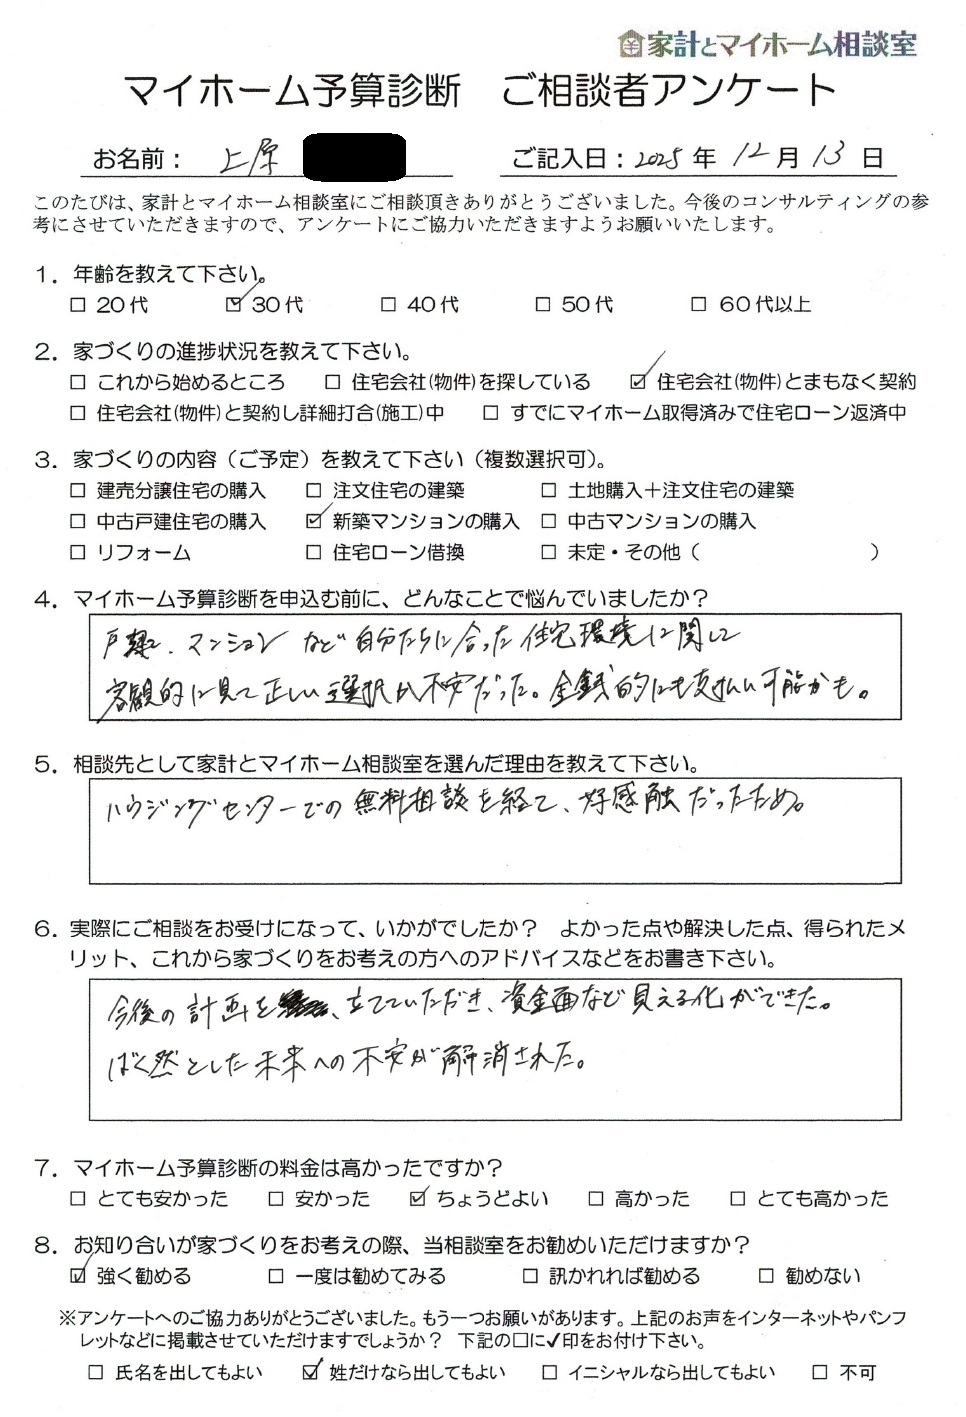 家計とマイホーム相談室
マイホーム予算診断　ご相談者アンケート
お名前： 上原　ご記入日：2025 年 12 月 13 日
このたびは、家計とマイホーム相談室にご相談頂きありがとうございました。今後のコンサルティングの参
考にさせていただきますので、アンケートにご協力いただきますようお願いいたします。
1．年齢を教えて下さい。
□ 20代　☑ 30代　□ 40代　□ 50代　□ 60代以上
2．家づくりの進捗状況を教えて下さい。
□ これから始めるところ　□ 住宅会社(物件)を探している　☑ 住宅会社(物件)とまもなく契約
□ 住宅会社(物件)と契約し詳細打合(施工)中　□ すでにマイホーム取得済みで住宅ローン返済中
3．家づくりの内容（ご予定）を教えて下さい（複数選択可）。
□ 建売分譲住宅の購入　□ 注文住宅の建築　□ 土地購入＋注文住宅の建築
□ 中古戸建住宅の購入　☑ 新築マンションの購入　□ 中古マンションの購入
□ リフォーム　□ 住宅ローン借換　□ 未定・その他（　　　）
4．マイホーム予算診断を申込む前に、どんなことで悩んでいましたか？
戸建、マンションなど自分たちに合った住宅環境に関して
客観的に見て正しい選択か不安だった。金銭的にも支払い可能かも。
5．相談先として家計とマイホーム相談室を選んだ理由を教えて下さい。
ハウジングセンターでの無料相談を経て、好感触だったため。
6．実際にご相談をお受けになって、いかがでしたか？　よかった点や解決した点、得られたメ
リット、これから家づくりをお考えの方へのアドバイスなどをお書き下さい。
今後の計画を、立てていただき、資金面など見える化ができた。
ばく然とした未来への不安が解消された。
7．マイホーム予算診断の料金は高かったですか？
□ とても安かった　□ 安かった　☑ ちょうどよい　□ 高かった　□ とても高かった
8．お知り合いが家づくりをお考えの際、当相談室をお勧めいただけますか？
☑ 強く勧める　□ 一度は勧めてみる　□ 訊かれれば勧める　□ 勧めない
※アンケートへのご協力ありがとうございました。もう一つお願いがあります。上記のお声をインターネットやパンフ
レットなどに掲載させていただけますでしょうか？　下記の□に✓印をお付け下さい。
□ 氏名を出してもよい　☑ 姓だけなら出してもよい　□ イニシャルなら出してもよい　□ 不可